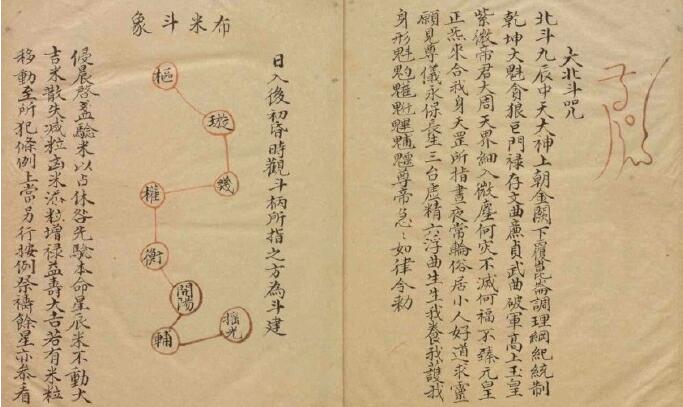 大北斗咒
北斗九辰中天大神上朝金闕下履崑崙調理綱紀統制
乾坤大魁貪狼巨門祿存文曲廉貞武曲破軍髙上玉皇
紫微帝君大周天界細入微塵何灾不滅何福不臻元皇
正炁來合我身天罡所指晝夜常輪俗居小人好道求靈
願見尊儀永保長生三台虛精六淳曲生生我養我護我
身形魁尊帝急〻如律令勑
布米斗象
日入後初昏時觀斗柄所指之方為斗建
樞
璇
璣
權
衡
開陽
輔
搖光
侵晨啓盖驗米以占休咎先驗本命星辰米不動大
吉米散失減粒凶米添粒增祿益壽大吉若有米粒
移動至所犯條例上當另行按例祭禱餘星亦叅看